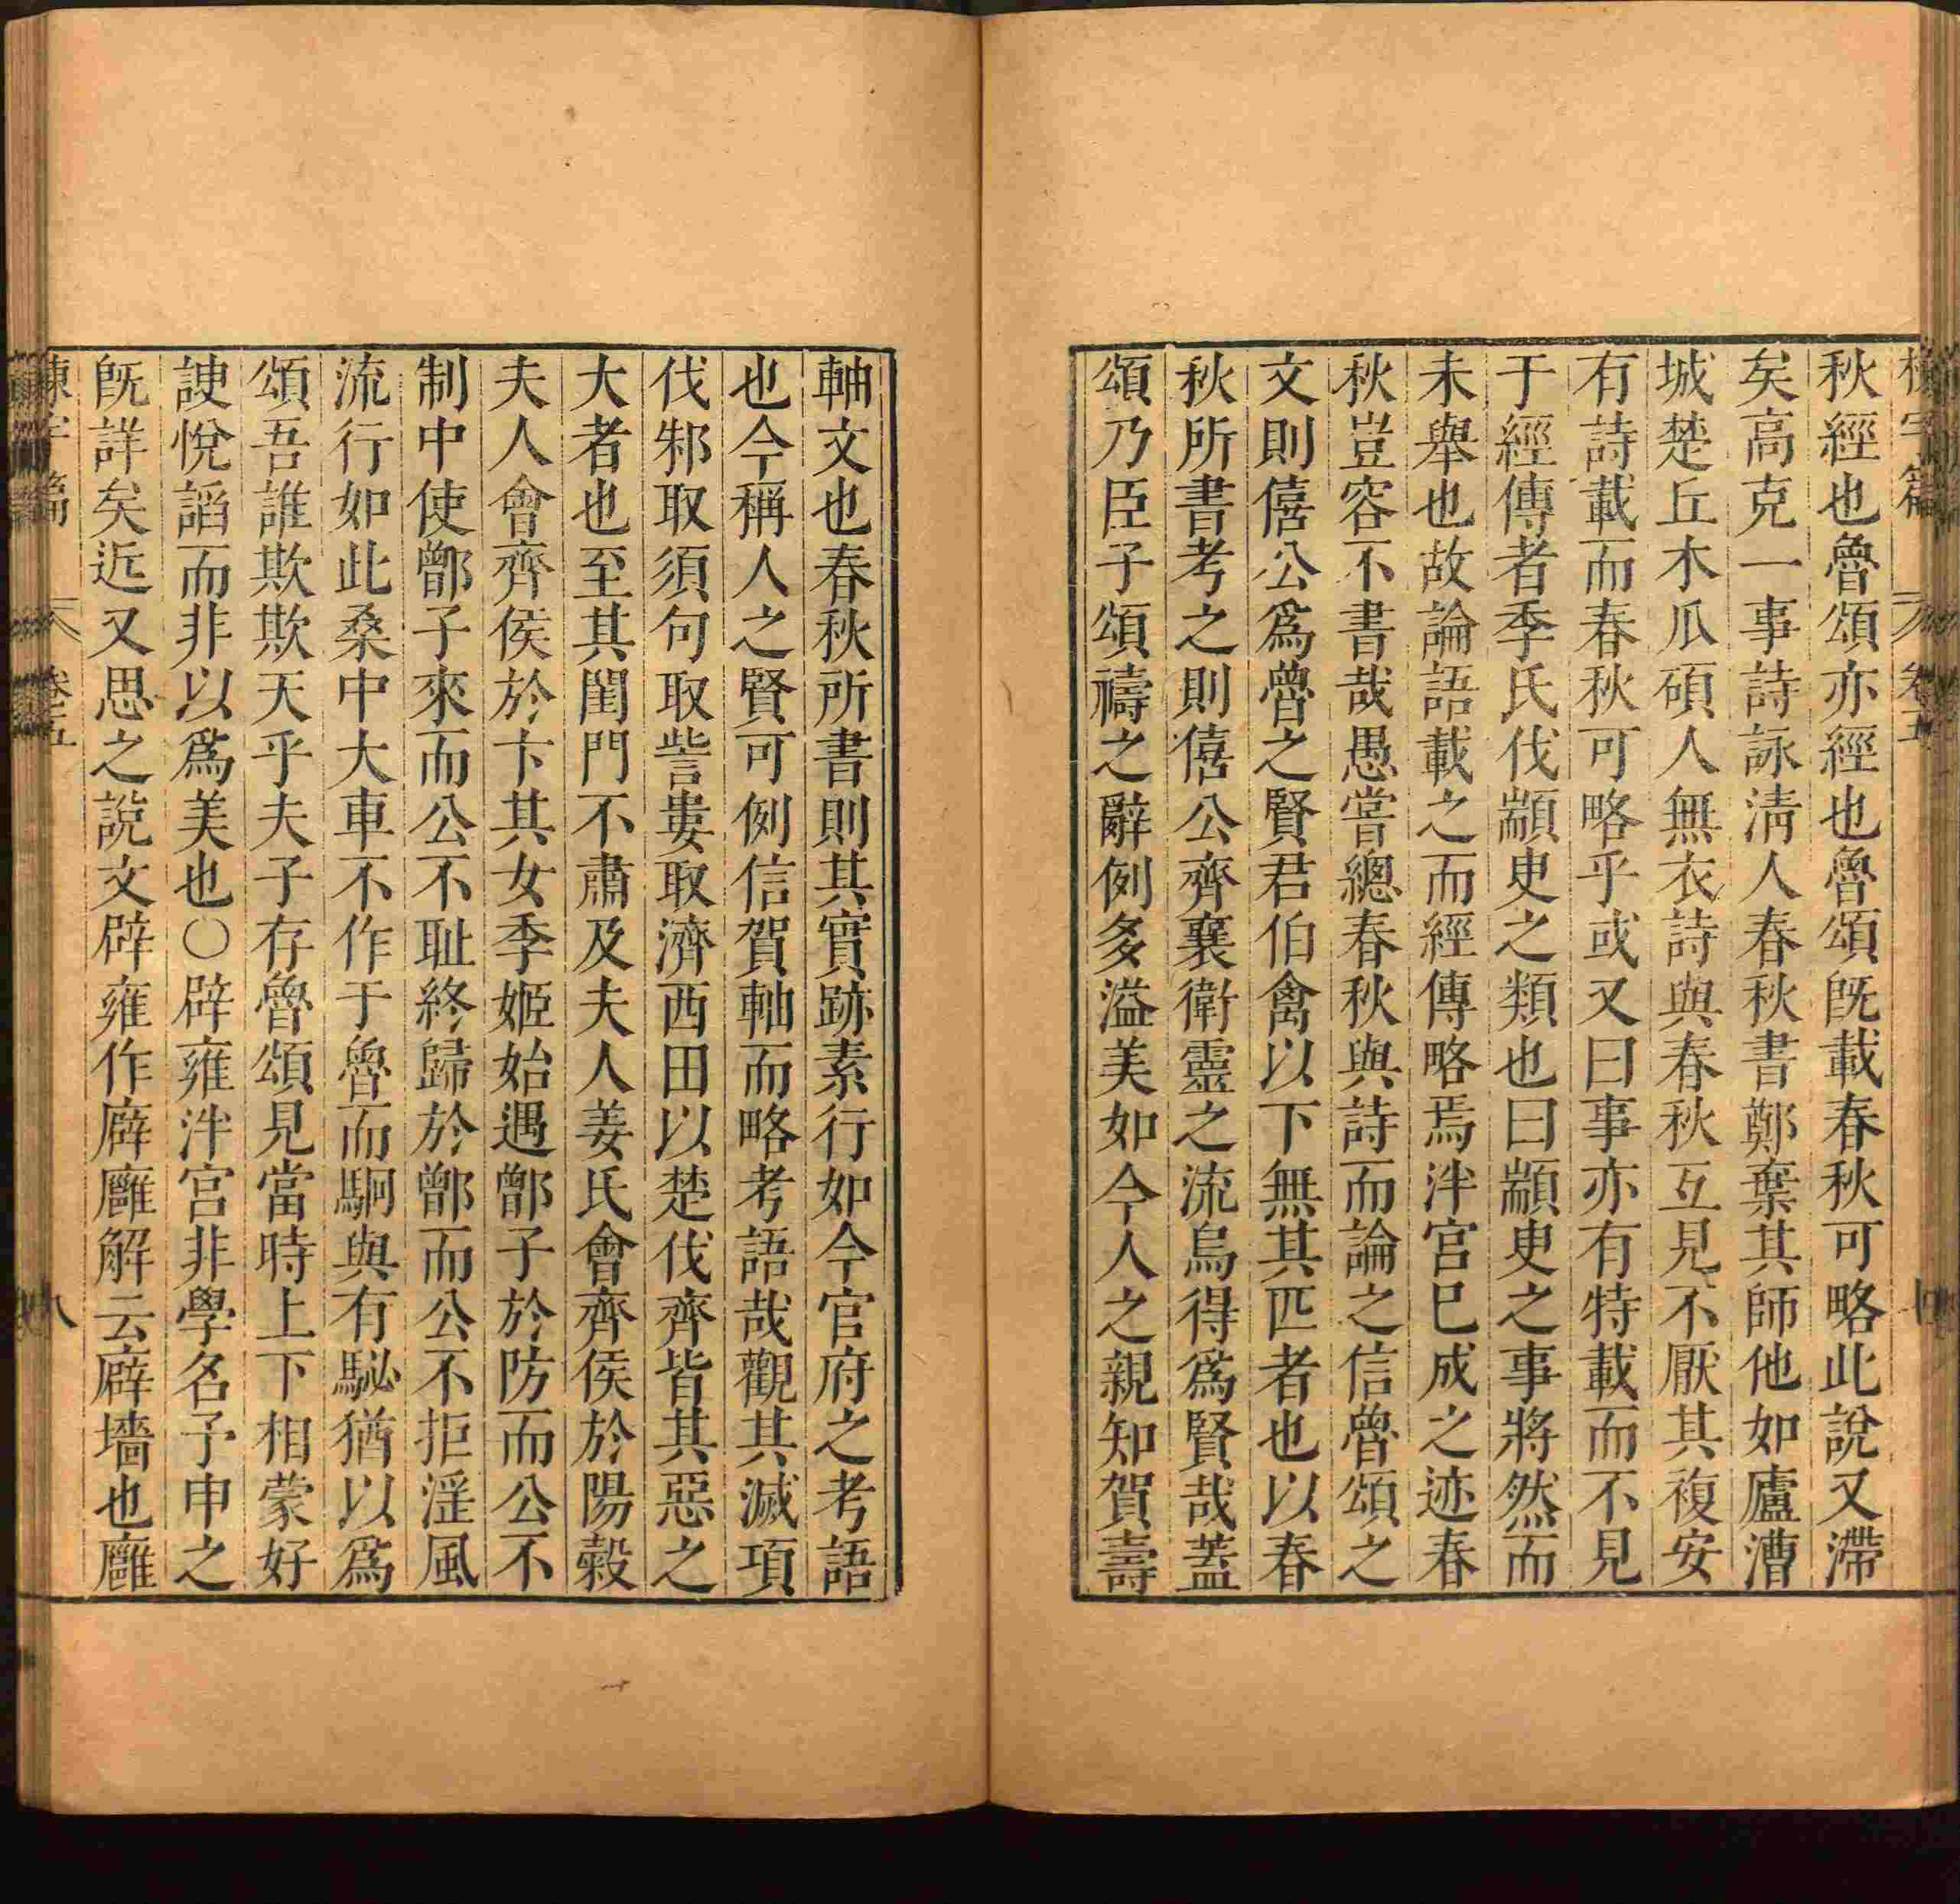 秋經也魯頌亦經也魯頌旣載春秋可略此說又滯
矣高克一事詩詠淸人春秋書鄭棄其師他如廬漕
城楚丘木瓜碩人無衣詩與春秋互見不厭其複安
有詩載而春秋可略乎或又曰事亦有特載而不見
于經傳者季氏伐顓臾之類也曰顓臾之事將然而
未舉也故論語載之而經傳略焉泮宮巳成之迹春
秋豈容不書哉愚嘗總春秋與詩而論之信魯頌之
文則僖公爲魯之賢君伯禽以下無其匹者也以春
秋所書考之則僖公齊襄衛靈之流烏得爲賢哉蓋
頌乃臣子頌禱之辭例多溢美如今人之親知賀壽
軸文也春秋所書則其實跡素行如今官府之考語
也今稱人之賢可例信賀軸而略考語哉觀其滅項
伐邾取須句取訾婁取濟西田以楚伐齊皆其惡之
大者也至其閨門不肅及夫人姜氏會齊侯於陽穀
夫人會齊侯於卞其女季姬始遇鄫子於防而公不
制中使鄫子來而公不耻終歸於鄫而公不拒淫風
流行如此桑中大車不作于魯而駉與有駜猶以爲
頌吾誰欺欺天乎夫子存魯頌見當時上下相蒙好
諛悅謟而非以爲美也○辟雍泮宮非學名予申之
旣詳矣近又思之說文辟雍作廦廱解云廦墻也廱
卷五
八